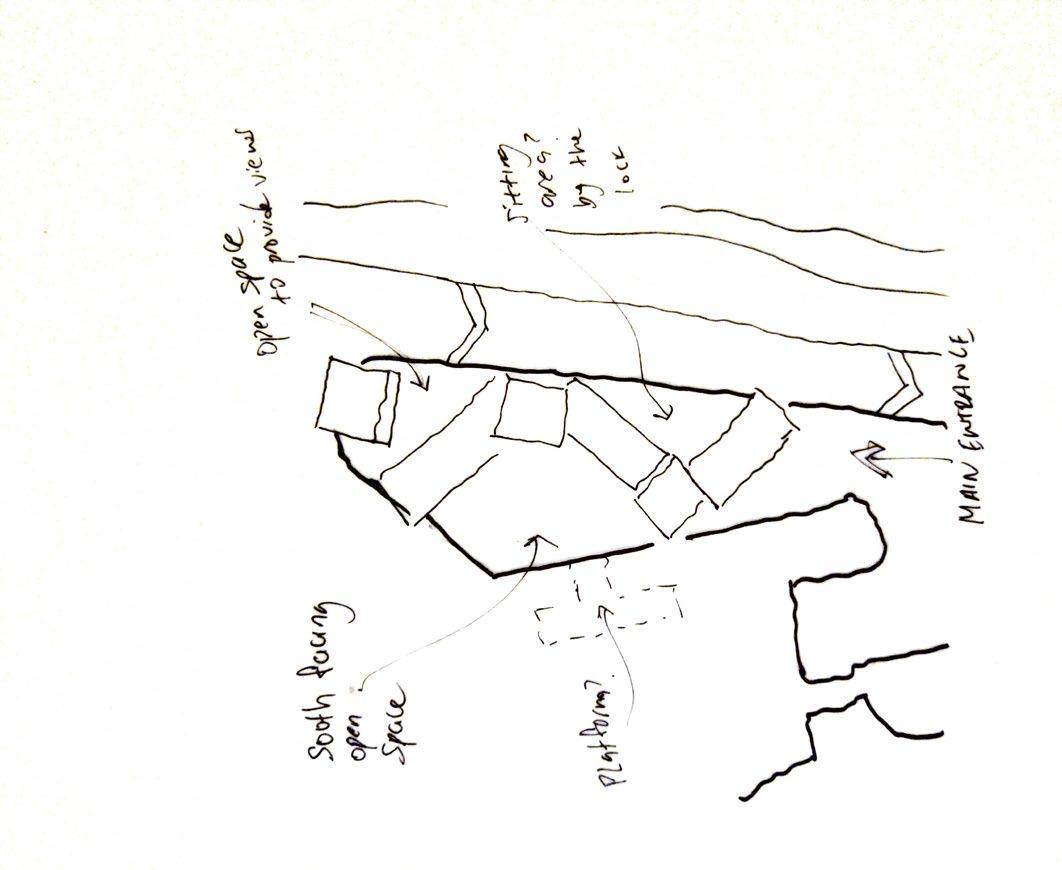 open space
to provide views
Sitting
area?
by the
lock
MAIN ENTRANCE
South facing
open
space
Platform?